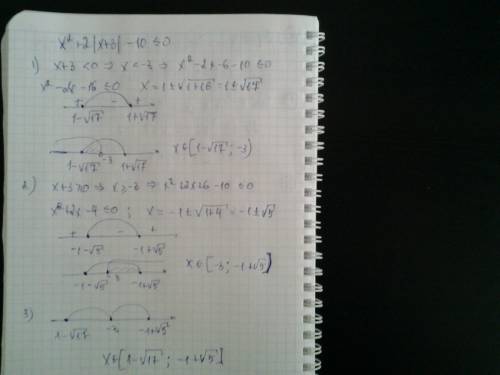 x² + 2|x+3| - 10 ≤ 0
1) x+3 < 0 ⇒ x < -3 ⇒ x² - 2x - 6 - 10 ≤ 0
x² - 2x - 16 ≤ 0   x = 1 ± √1+16 = 1 ± √17
+ - +
1-√17   1+√17
x ∈ [1-√17 ; -3)
1-√17   -3   1+√17
2) x+3 ≥ 0 ⇒ x ≥ -3 ⇒ x² + 2x + 6 - 10 ≤ 0
x² + 2x - 4 ≤ 0 ;   x = -1 ± √1+4 = -1 ± √5
+ - +
-1-√5   -1+√5
x ∈ [-3 ; -1+√5]
-1-√5   -3   -1+√5
3)
1-√17   -3   -1+√5
x ∈ [1-√17 ; -1+√5]